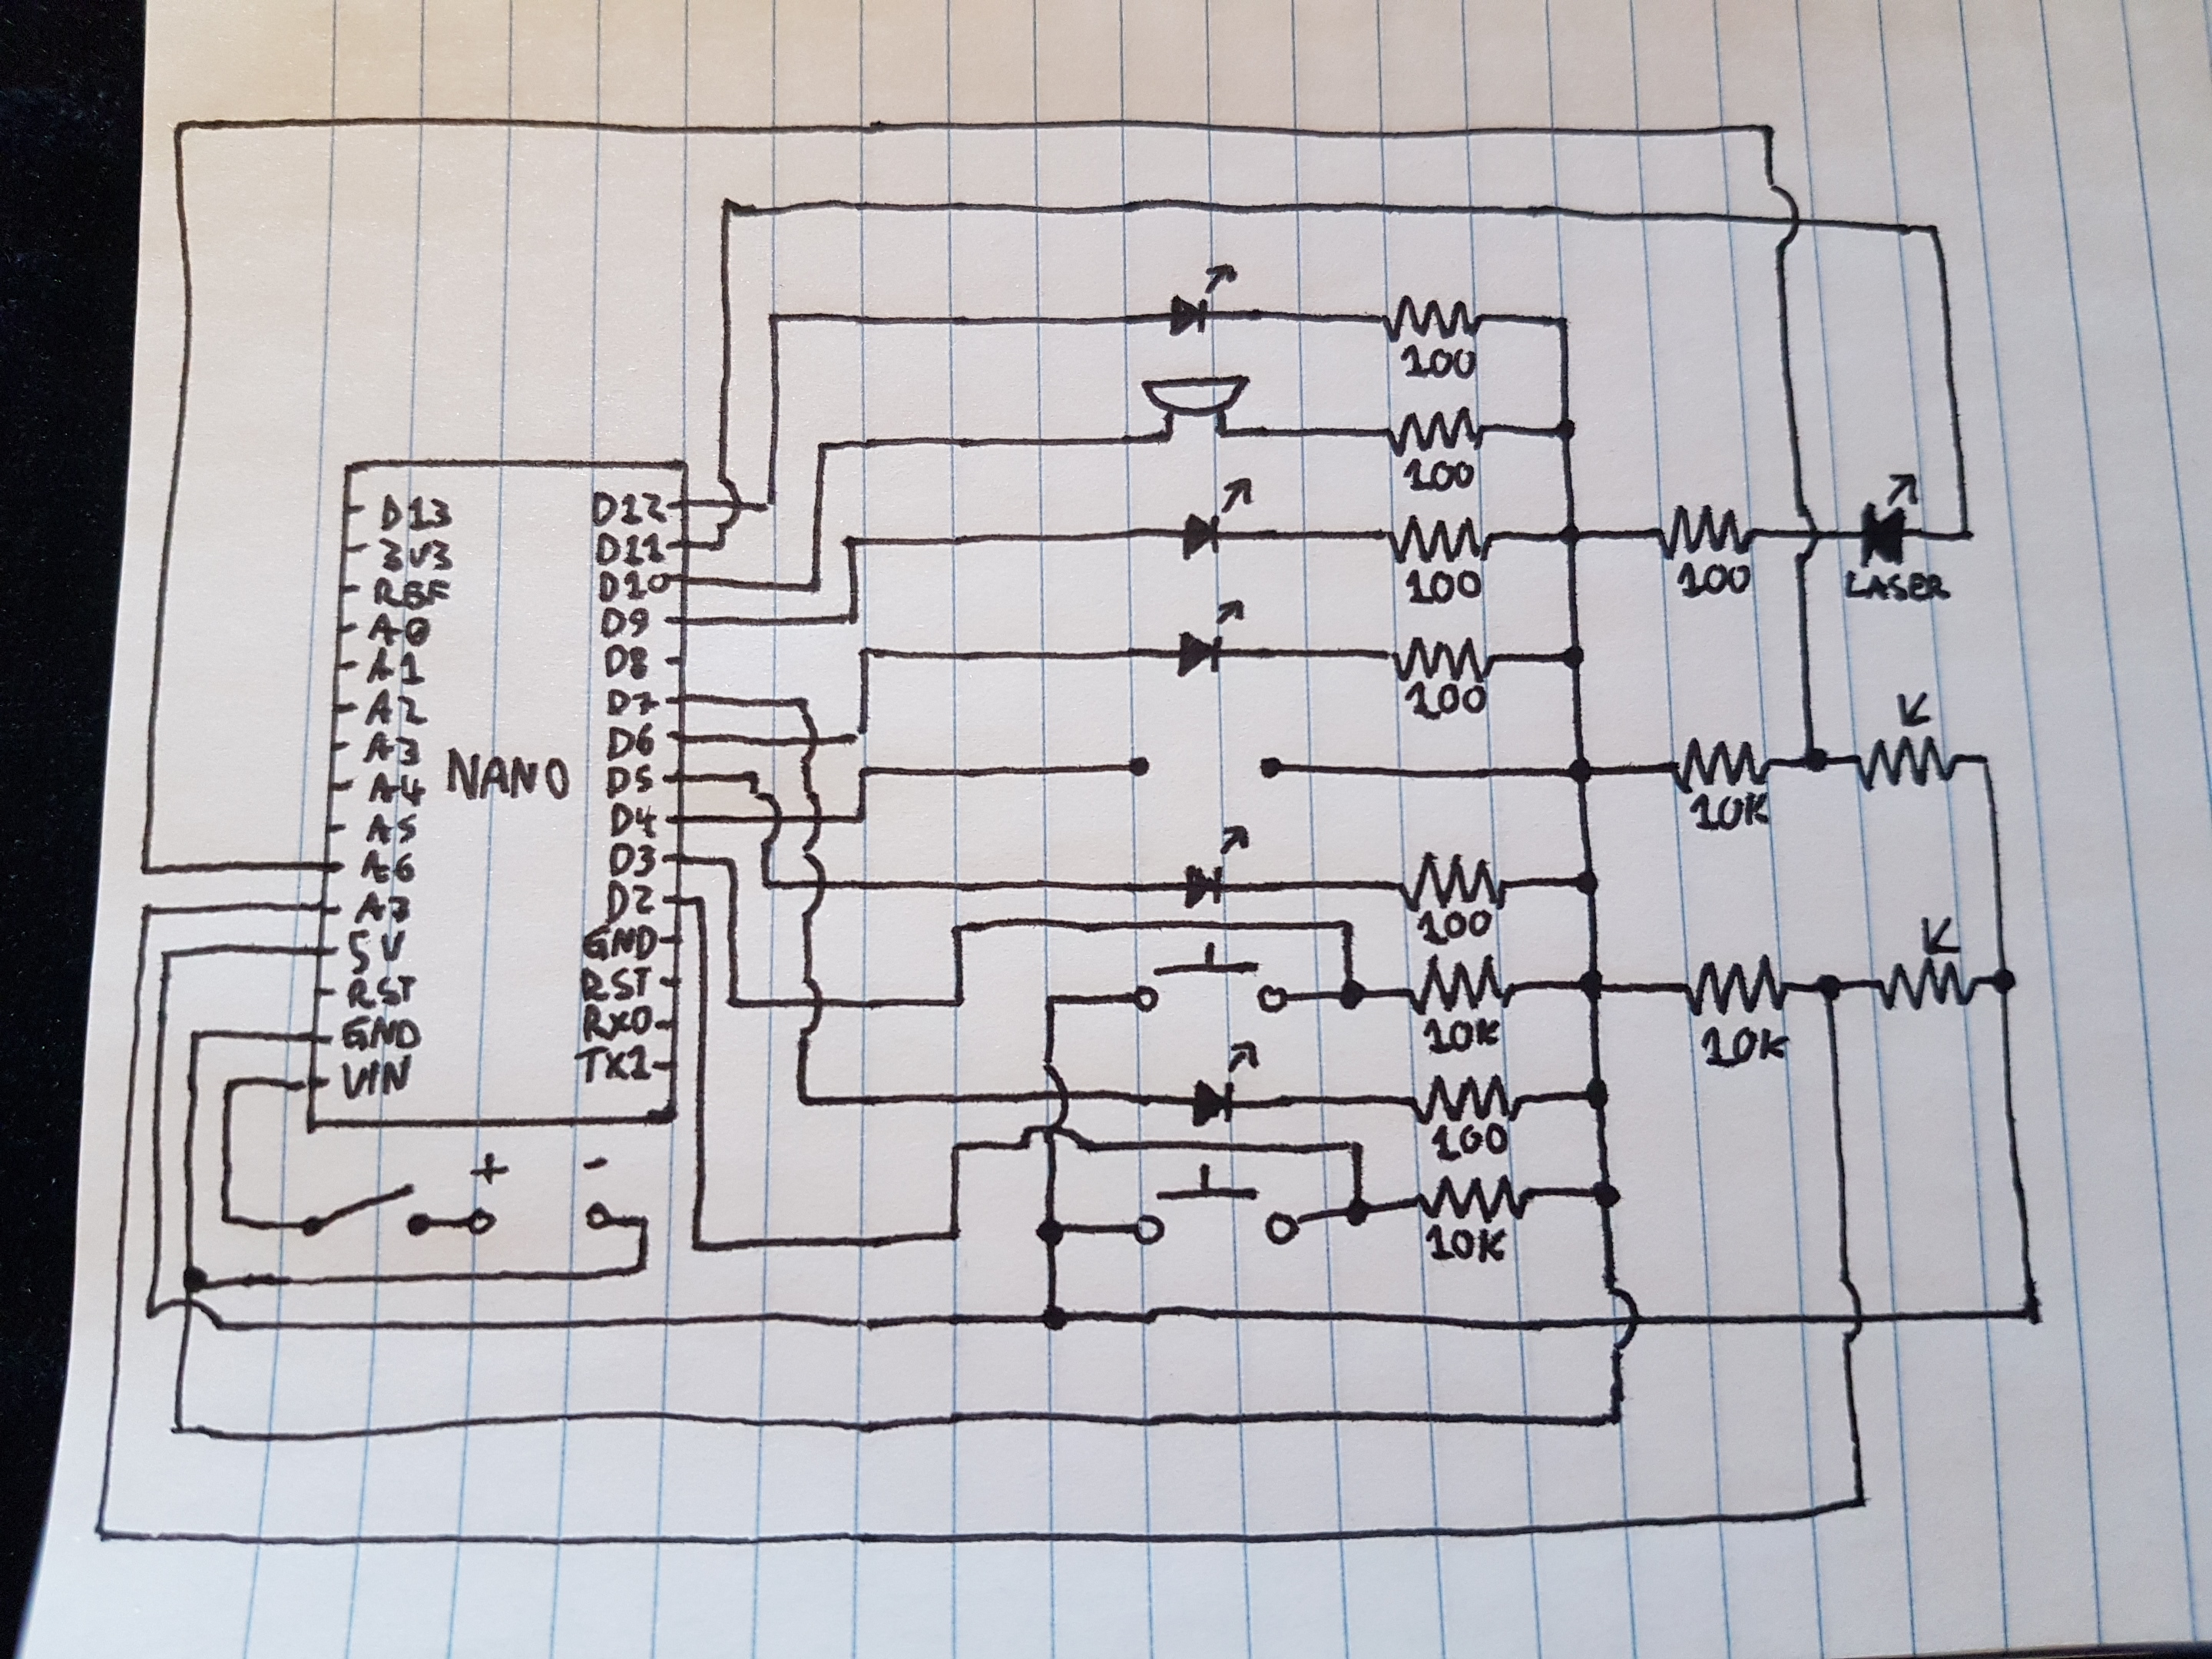 D13
3V3
REF
A0
A1
A2
A3
A4
A5
A6
A7
5V
RST
GND
VIN
NANO
D12
D11
D10
D9
D8
D7
D6
D5
D4
D3
D2
GND
RST
RX0
TX1
+ -
100
100
100
100
100
10K
100
10K
100
LASER
10K
10K